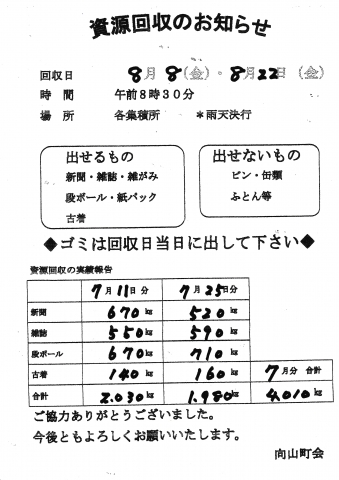 資源回収のお知らせ
回収日 8月8(金)・8月22日(金)
時間 午前8時30分
場所 各集積所 *雨天決行
出せるもの
新聞・雑誌・雑がみ
段ボール・紙パック
古着
出せないもの
ビン・缶類
ふとん等
◆ゴミは回収日当日に出して下さい◆
資源回収の実績報告
7月11日分 7月25日分
新聞 670kg 520kg
雑誌 550kg 590kg
段ボール 670kg 710kg
古着 140kg 160kg 7月分 合計
合計 2.030kg 1.980kg 4,010kg
ご協力ありがとうございました。
今後ともよろしくお願いいたします。
向山町会